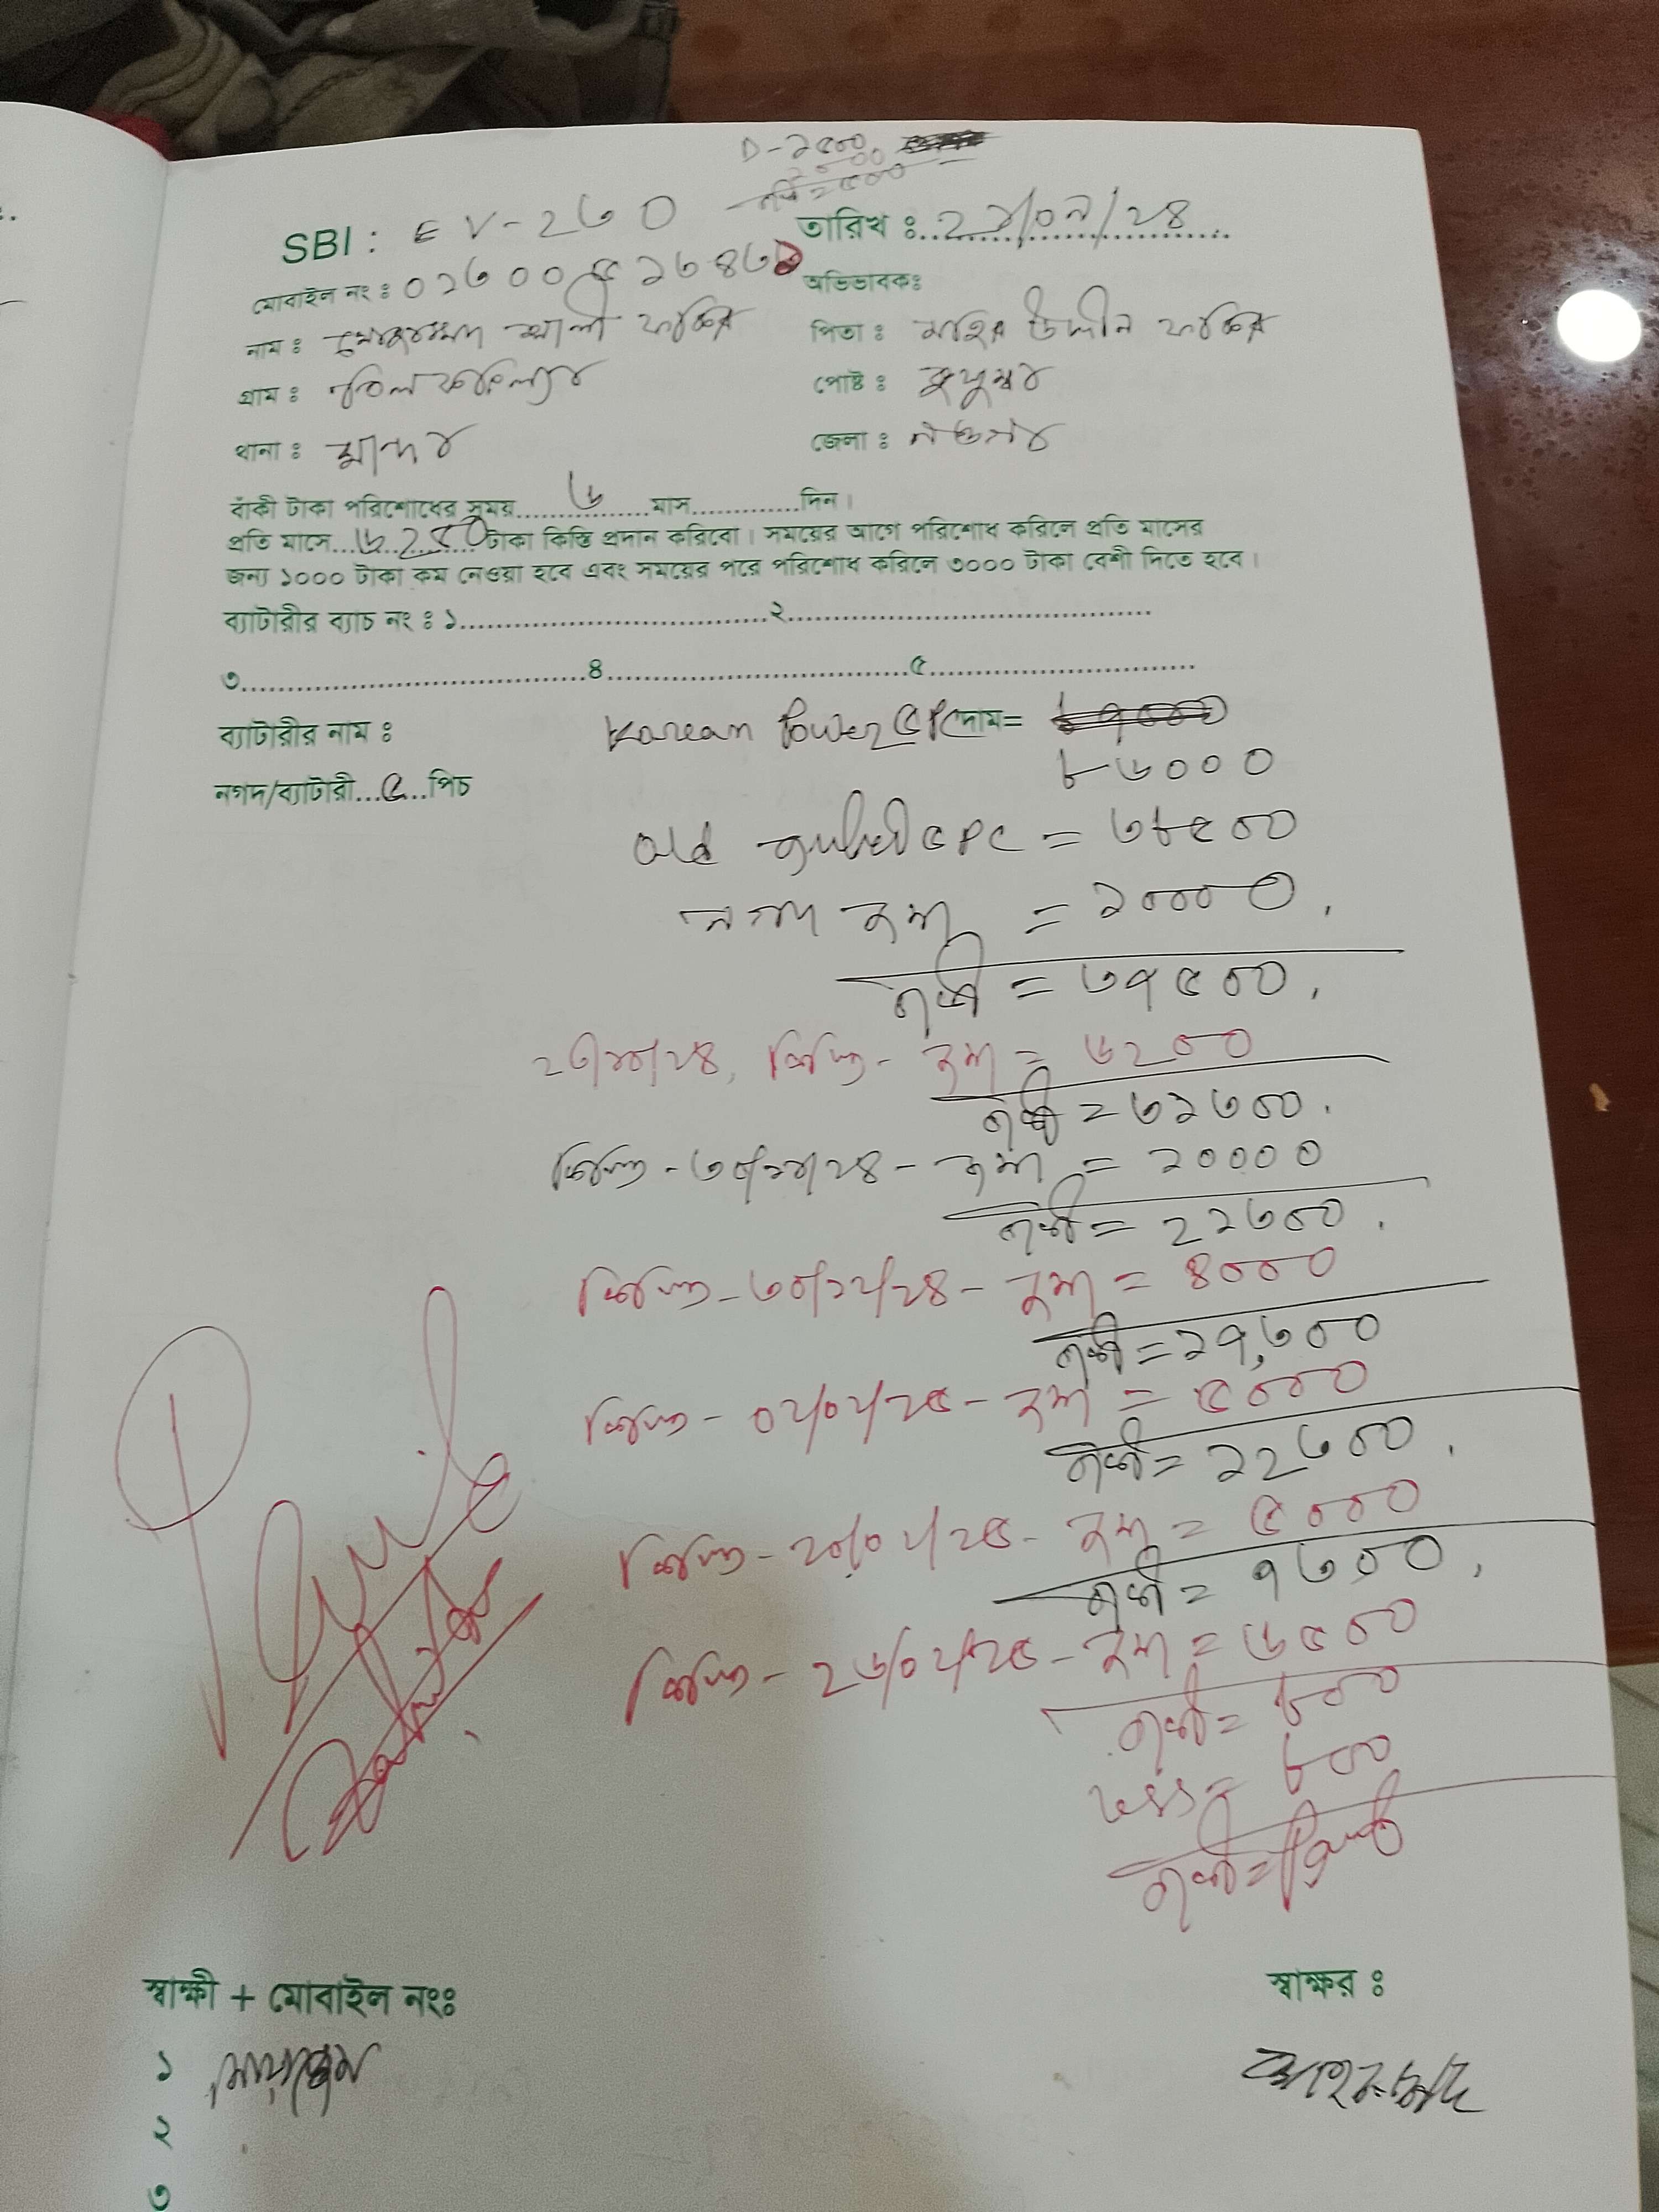 D-২৫০০
বাকী = ৫০০
SBI : EV-২৬০ তারিখ ঃ ২১/০৯/২৪
মোবাইল নং ঃ অভিভাবকঃ
নাম ঃ মোহাম্মদ আলী ফকির পিতা ঃ মহির উদ্দীন ফকির
গ্রাম ঃ পোষ্ট ঃ
থানা ঃ মান্দা জেলা ঃ নওগাঁ
বাঁকী টাকা পরিশোধের সময়......৬......মাস............দিন।
প্রতি মাসে...৬২৫০...টাকা কিস্তি প্রদান করিবো। সময়ের আগে পরিশোধ করিলে প্রতি মাসের
জন্য ১০০০ টাকা কম নেওয়া হবে এবং সময়ের পরে পরিশোধ করিলে ৩০০০ টাকা বেশী দিতে হবে।
ব্যাটারীর ব্যাচ নং ঃ ১..............২..............
৩..............৪..............৫..............
ব্যাটারীর নাম ঃ Korean Power ৫ PC দাম= ৮৭০০০
৮৬০০০
নগদ/ব্যাটারী...৫...পিচ
Old ৫ PC = ৩৮৫০০
নগদ জমা = ১০০০০
বাকী = ৩৭৫০০
২৩/১০/২৪, কিস্তি - জমা = ৬২০০
বাকী = ৩১৩০০
কিস্তি - ৩০/১১/২৪ - জমা = ১০০০০
বাকী = ২১৩০০
কিস্তি - ৩০/১২/২৪ - জমা = ৪০০০
বাকী = ১৭,৩০০
কিস্তি - ০২/০২/২৫ - জমা = ৫০০০
বাকী = ১২৩০০
কিস্তি - ২০/০২/২৫ - জমা = ৫০০০
বাকী = ৭৩০০
কিস্তি - ২৬/০২/২৫ - জমা = ৬৫০০
বাকী = ৮০০
Less = ৮০০
বাকী = Paid
Paid
স্বাক্ষী + মোবাইল নংঃ স্বাক্ষর ঃ
১
২
৩